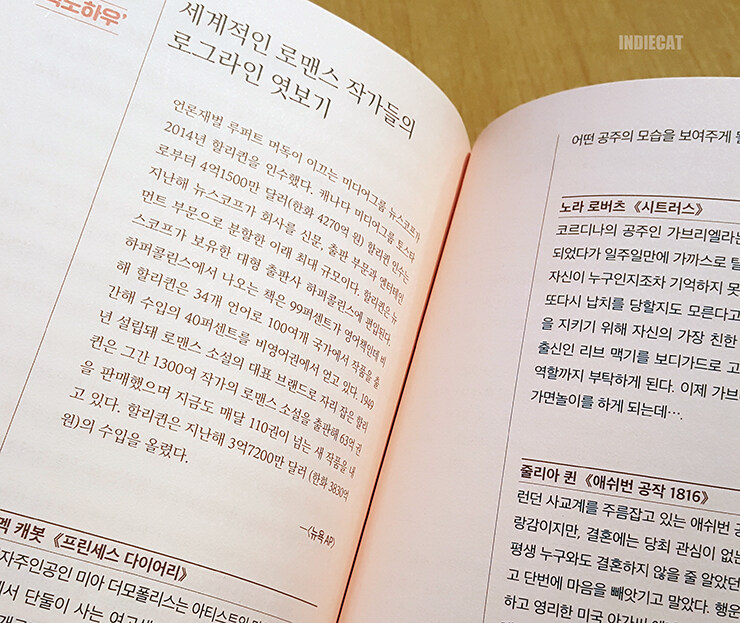 노하우’
세계적인 로맨스 작가들의
로그라인 엿보기
언론재벌 루퍼트 머독이 이끄는 미디어그룹 뉴스코프가
2014년 할리퀸을 인수했다. 캐나다 미디어그룹 토스타
로부터 4억1500만 달러(한화 4270억 원) 할리퀸 인수는
지난해 뉴스코프가 회사를 신문, 출판 부문과 엔터테인
먼트 부문으로 분할한 이래 최대 규모이다. 할리퀸은 뉴
스코프가 보유한 대형 출판사 하퍼콜린스에 편입된다.
하퍼콜린스에서 나오는 책은 99퍼센트가 영어책인데 비
해 할리퀸은 34개 언어로 100여개 국가에서 작품을 출
간해 수입의 40퍼센트를 비영어권에서 얻고 있다. 1949
년 설립돼 로맨스 소설의 대표 브랜드로 자리 잡은 할리
퀸은 그간 1300여 작가의 로맨스 소설을 출판해 63억 권
을 판매했으며 지금도 매달 110권이 넘는 새 작품을 내
고 있다. 할리퀸은 지난해 3억7200만 달러 (한화 3830억
원)의 수입을 올렸다.
―〈뉴욕 AP〉
멕 캐봇 《프린세스 다이어리》
자주인공인 미아 더모폴리스는 아티스트인
에서 단둘이 사는
INDIECAT
어떤 공주의 모습을 보여주게
노라 로버츠 《시트러스》
코르디나의 공주인 가브리엘라는
되었다가 일주일만에 가까스로 탈
자신이 누구인지조차 기억하지 못
또다시 납치를 당할지도 모른다고
을 지키기 위해 자신의 가장 친한
출신인 리브 맥기를 보디가드로 고
역할까지 부탁하게 된다. 이제 가브
가면놀이를 하게 되는데….
줄리아 퀸 《애쉬번 공작 1816》
런던 사교계를 주름잡고 있는 애쉬번 공
랑감이지만, 결혼에는 당최 관심이 없는
평생 누구와도 결혼하지 않을 줄 알았던
고 단번에 마음을 빼앗기고 말았다. 행운
하고 영리한 미국 아가씨